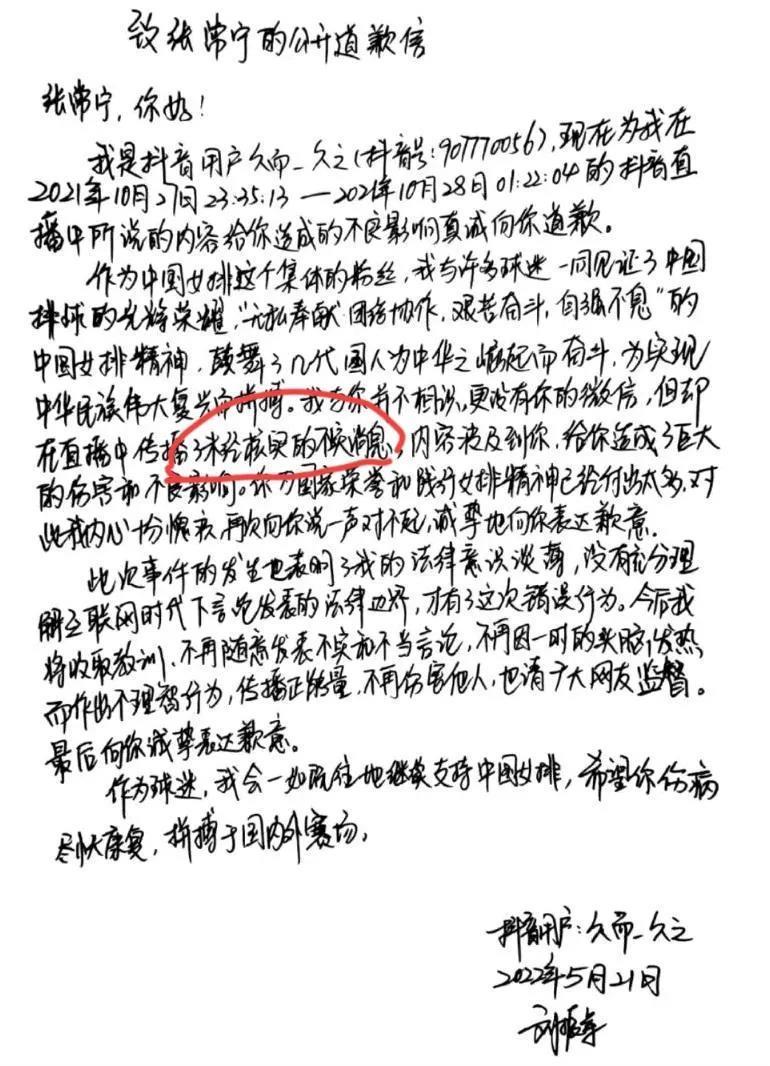 致张常宁的公开道歉信
张常宁，你好！
我是抖音用户久而_久之(抖音号：907770056)，现在为我在
2021年10月27日23:35:13—2021年10月28日01:22:04的抖音直
播中所说的内容给你造成的不良影响真诚向你道歉。
作为中国女排这个集体的粉丝，我与许多球迷一同见证了中国
排球的光辉荣耀，“无私奉献 团结协作，艰苦奋斗，自强不息”的
中国女排精神，鼓舞了几代国人为中华之崛起而奋斗，为实现
中华民族伟大复兴而拼搏。我与你并不相识，更没有你的微信，但却
在直播中传播了未经核实的不实消息，内容波及到你，给你造成了巨大
的伤害和不良影响。你为国家荣誉和践行女排精神已经付出太多，对
此我内心十分愧疚，再次向你说一声对不起，诚挚地向你表达歉意。
此次事件的发生也表明了我的法律意识淡薄，没有充分理
解互联网时代下言论发表的法律边界，才有了这次错误行为。今后我
将吸取教训，不再随意发表不实和不当言论，不再因一时的头脑发热
而作出不理智行为，传播正能量，不再伤害他人，也请广大网友监督。
最后向你诚挚表达歉意。
作为球迷，我会一如既往地继续支持中国女排，希望你伤病
尽快康复，拼搏于国内外赛场。
抖音用户：久而_久之
2022年5月21日